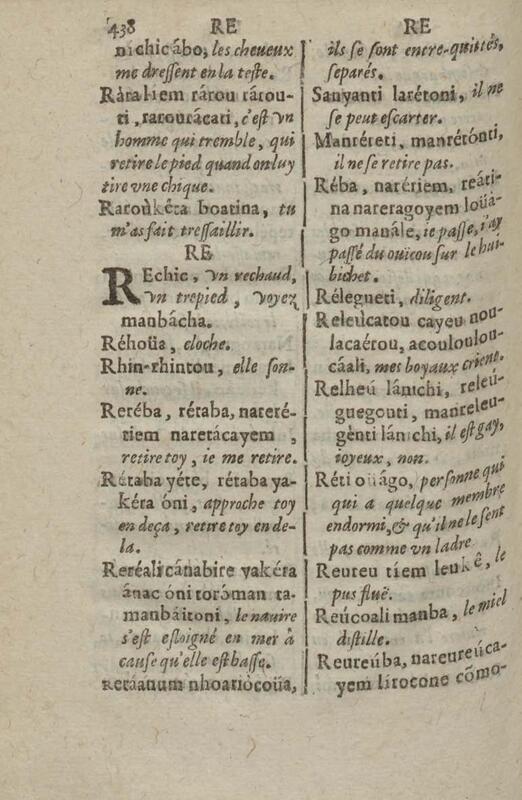 438 RE RE
nichicábo, les cheueux
me dressent en la teste.
Ràtaliem rárou rárou-
ti, raroutácati, c'est vn
homme qui tremble, qui
retire le pied quand on luy
tire vne chique.
Raroùkéta boatina, tu
m'as fait tressaillir.
RE
REchic, vn rechaud,
vn trepied, voyez
manbácha.
Réhoüa, cloche.
Rhin-rhintou, elle son-
ne.
Reréba, rétaba, nareré-
tiem naretácayem,
retire toy, ie me retire.
Rétaba yéte, rétaba ya-
kéra óni, approche toy
en deça, retire toy en de-
la.
Reréali cánabire yakéra
ánac óni toróman ta-
manbáitoni, le nauire
s'est esloigné en mer à
cause qu'elle est basse.
Retáanum nhoariócoüa,
ils se sont entre-quittés,
separés.
Sanyanti larétoni, il ne
se peut escarter.
Manréreti, manrétónti,
il ne se retire pas.
Réba, narériem, reáti-
na nareragoyem loüa-
go manâle, ie passe, i'ay
passé du ouicou sur le hui-
bichet.
Rélegueti, diligent.
Releúcatou cayeu nou-
lacaérou, acouloulou-
cáali, mes boyaux crient.
Relheú lánichi, releú-
guegouti, manreleu-
gènti lánichi, il est gay,
ioyeux, non.
Réti ouágo, personne qui
qui a quelque membre
endormi, & qu'il ne le sent
pas comme vn ladre
Reureu tíem leukê, le
pus fluë.
Reúcoali manba, le miel
distille.
Reureúba, nareureúca-
yem lírocone cõmo-